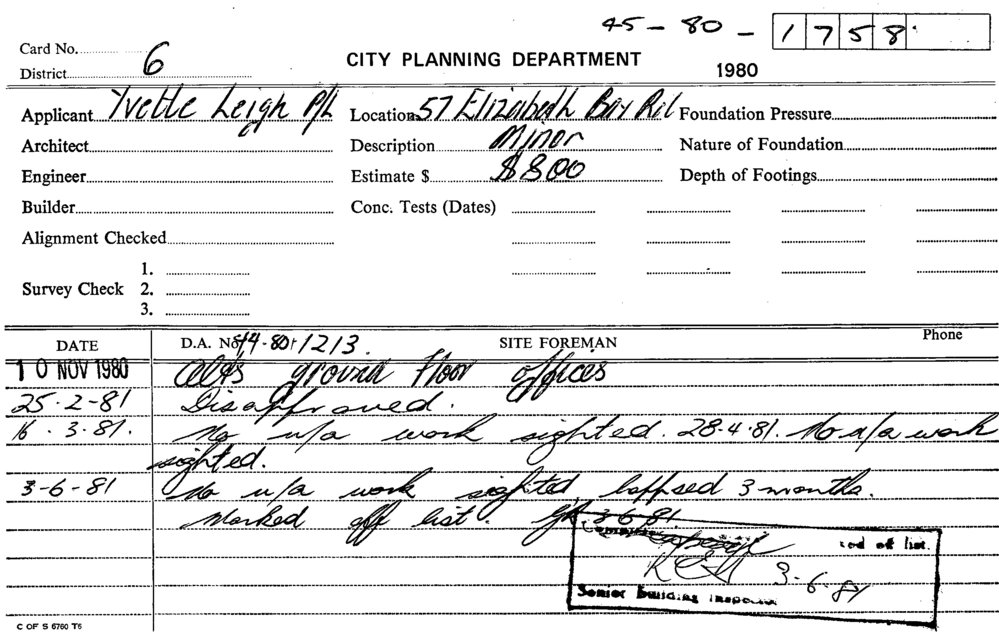 45 - 80 - 1758
Card No.
District 6
CITY PLANNING DEPARTMENT
1980
Applicant Yvette Leigh P/L Location 57 Elizabeth Bay Rd Foundation Pressure
Architect Description Minor Nature of Foundation
Engineer Estimate $ $800 Depth of Footings
Builder Conc. Tests (Dates)
Alignment Checked
1.
Survey Check 2.
3.
DATE D.A. No 44-80-1213. SITE FOREMAN Phone
10 NOV 1980 Alts ground floor offices
25-2-81 Disapproved.
16.3.81. No u/a work sighted. 28.4.81. No u/a work
sighted.
3-6-81 No u/a work sighted lapsed 3 months.
Marked off list. 3-6-81
of list.
3-6-81
Senior Building Inspector
C OF S 6760 T6